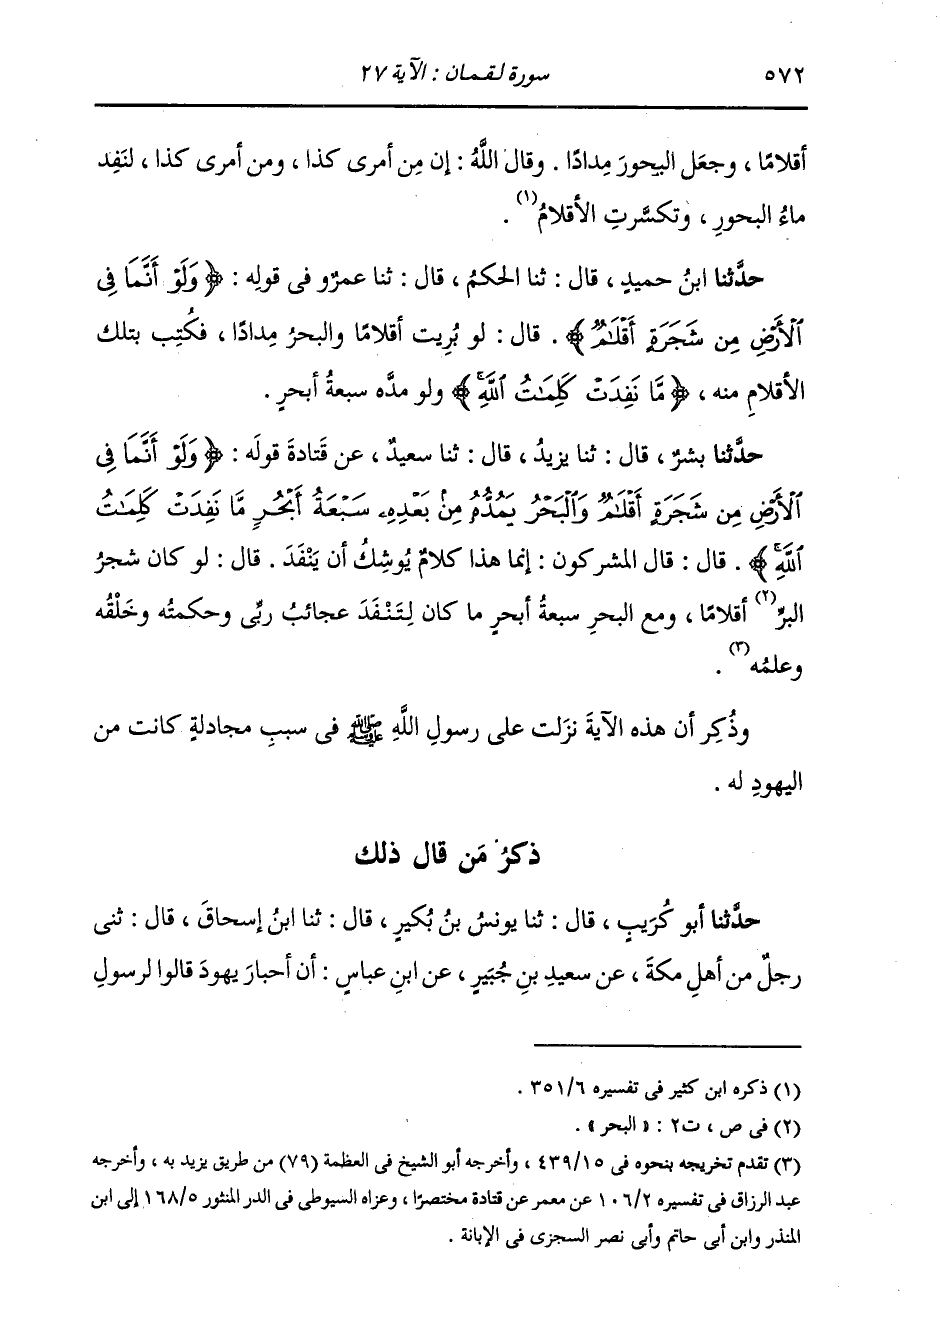 ٥٧٢
سورة لقمان : الآية ٢٧
أقلامًا ، وجعَل البحورَ مِدادًا . وقال اللَّهُ : إن مِن أمرى كذا ، ومن أمرى كذا ، لنَفِد
ماءُ البحورِ ، وتكسَّرتِ الأقلامُ(١) .
حدَّثنا ابنُ حميدٍ ، قال : ثنا الحكمُ ، قال : ثنا عمرٌو فى قولِه : ﴿ وَلَوْ أَنَّمَا فِى
ٱلْأَرْضِ مِن شَجَرَةٍ أَقْلَـٰمٌ ﴾ . قال : لو بُرِيت أقلامًا والبحرُ مِدادًا ، فكُتِب بتلك
الأقلامِ منه ، ﴿ مَّا نَفِدَتْ كَلِمَـٰتُ ٱللَّهِۚ ﴾ ولو مدَّه سبعةُ أبحرٍ .
حدَّثنا بشرٌ ، قال : ثنا يزيدُ ، قال : ثنا سعيدٌ ، عن قَتادةَ قولَه : ﴿ وَلَوْ أَنَّمَا فِى
ٱلْأَرْضِ مِن شَجَرَةٍ أَقْلَـٰمٌ وَٱلْبَحْرُ يَمُدُّهُ مِنۢ بَعْدِهِۦ سَبْعَةُ أَبْحُرٍ مَّا نَفِدَتْ كَلِمَـٰتُ
ٱللَّهِۚ ﴾ . قال : قال المشركون : إنما هذا كلامٌ يُوشِكُ أن يَنْفَدَ . قال : لو كان شجرُ
البرِّ(٢) أقلامًا ، ومع البحرِ سبعةُ أبحرٍ ما كان لِتَنْفَدَ عجائبُ ربِّى وحكمتُه وخَلْقُه
وعلمُه(٣) .
وذُكِر أن هذه الآيةَ نزَلت على رسولِ اللَّهِ ﷺ فى سببِ مجادلةٍ كانت من
اليهودِ له .
ذكرُ مَن قال ذلك
حدَّثنا أبو كُرَيبٍ ، قال : ثنا يونسُ بنُ بُكيرٍ ، قال : ثنا ابنُ إسحاقَ ، قال : ثنى
رجلٌ من أهلِ مكةَ ، عن سعيدِ بنِ جُبَيرٍ ، عن ابنِ عباسٍ : أن أحبارَ يهودَ قالوا لرسولِ
(١) ذكره ابن كثير فى تفسيره ٣٥١/٦ .
(٢) فى ص ، ت٢ : « البحر » .
(٣) تقدم تخريجه بنحوه فى ٤٣٩/١٥ ، وأخرجه أبو الشيخ فى العظمة (٧٩) من طريق يزيد به ، وأخرجه
عبد الرزاق فى تفسيره ١٠٦/٢ عن معمر عن قتادة مختصرًا ، وعزاه السيوطى فى الدر المنثور ١٦٨/٥ إلى ابن
المنذر وابن أبى حاتم وأبى نصر السجزى فى الإبانة .